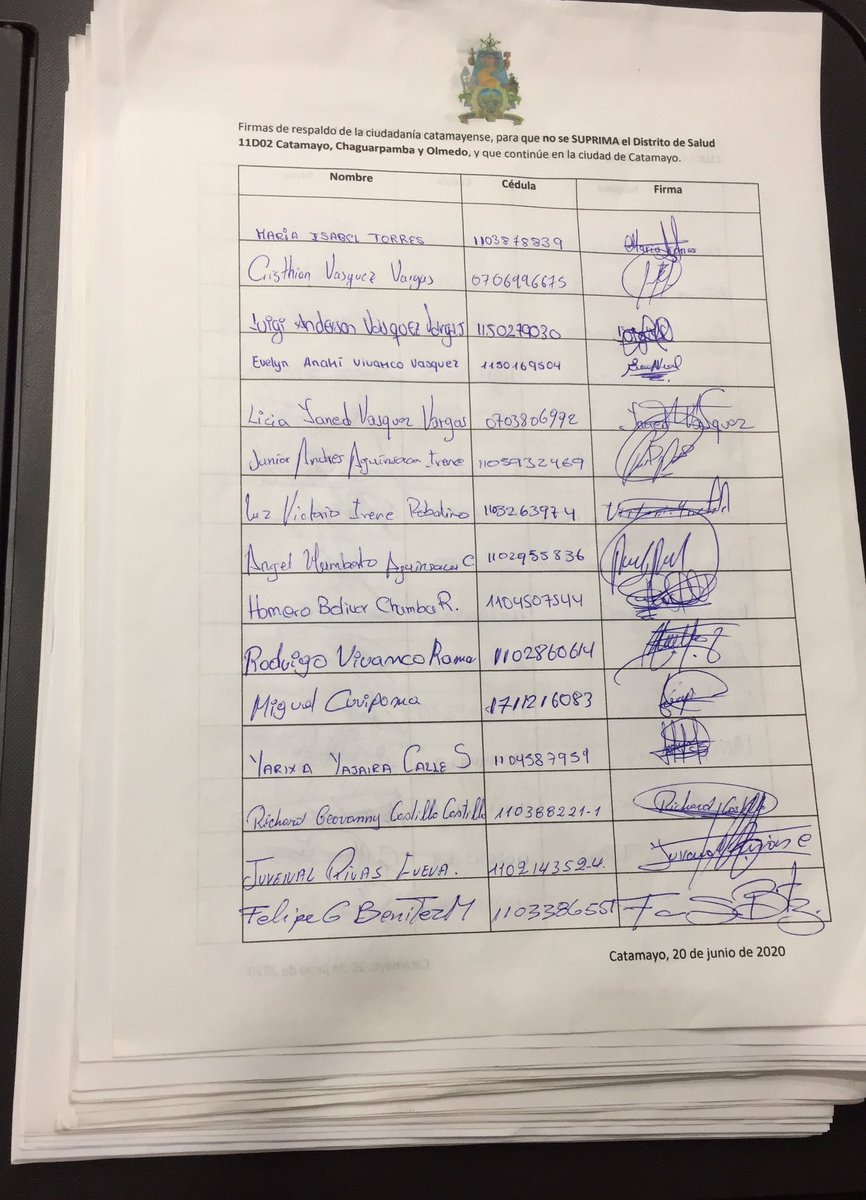 Firmas de respaldo de la ciudadanía catamayense, para que no se SUPRIMA el Distrito de Salud
11D02 Catamayo, Chaguarpamba y Olmedo, y que continúe en la ciudad de Catamayo.
Nombre Cédula Firma
MARIA ISABEL TORRES 1103878839
Cristhian Vasquez Vargas 0706996675
Luigi Anderson Vasquez Vargas 1150279030
Evelyn Anahi Vivanco Vasquez 1150169504
Licia Janed Vasquez Vargas 0703806992 Janed Vasquez
Junior Andres Aguinsaca Irene 1105932469
Luz Victoria Irene Robalino 1103263974
Angel Humberto Aguinsaca C 1102955836
Homero Bolivar Chamba R. 1104507544
Rodrigo Vivanco Rama 1102860614
Miguel Curipoma 1711216083
YARIXA YAJAIRA CALLE S 1104587959
Richard Geovanny Castillo Castillo 110388221-1 Richard Castillo
JUVENAL RIVAS CUEVA. 110214352-4. Juvenal Rivas C
Felipe G Benitez M 1103386551
Catamayo, 20 de junio de 2020